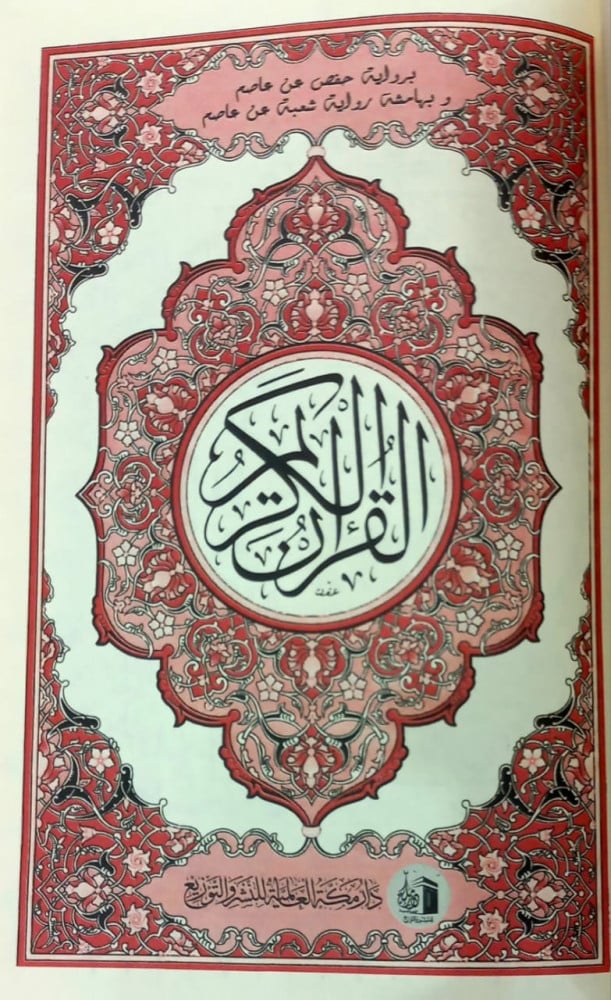 برواية حفص عن عاصم
و بهامشة رواية شعبة عن عاصم
القرآن الكريم
دار مكة العالمية للنشر والتوزيع